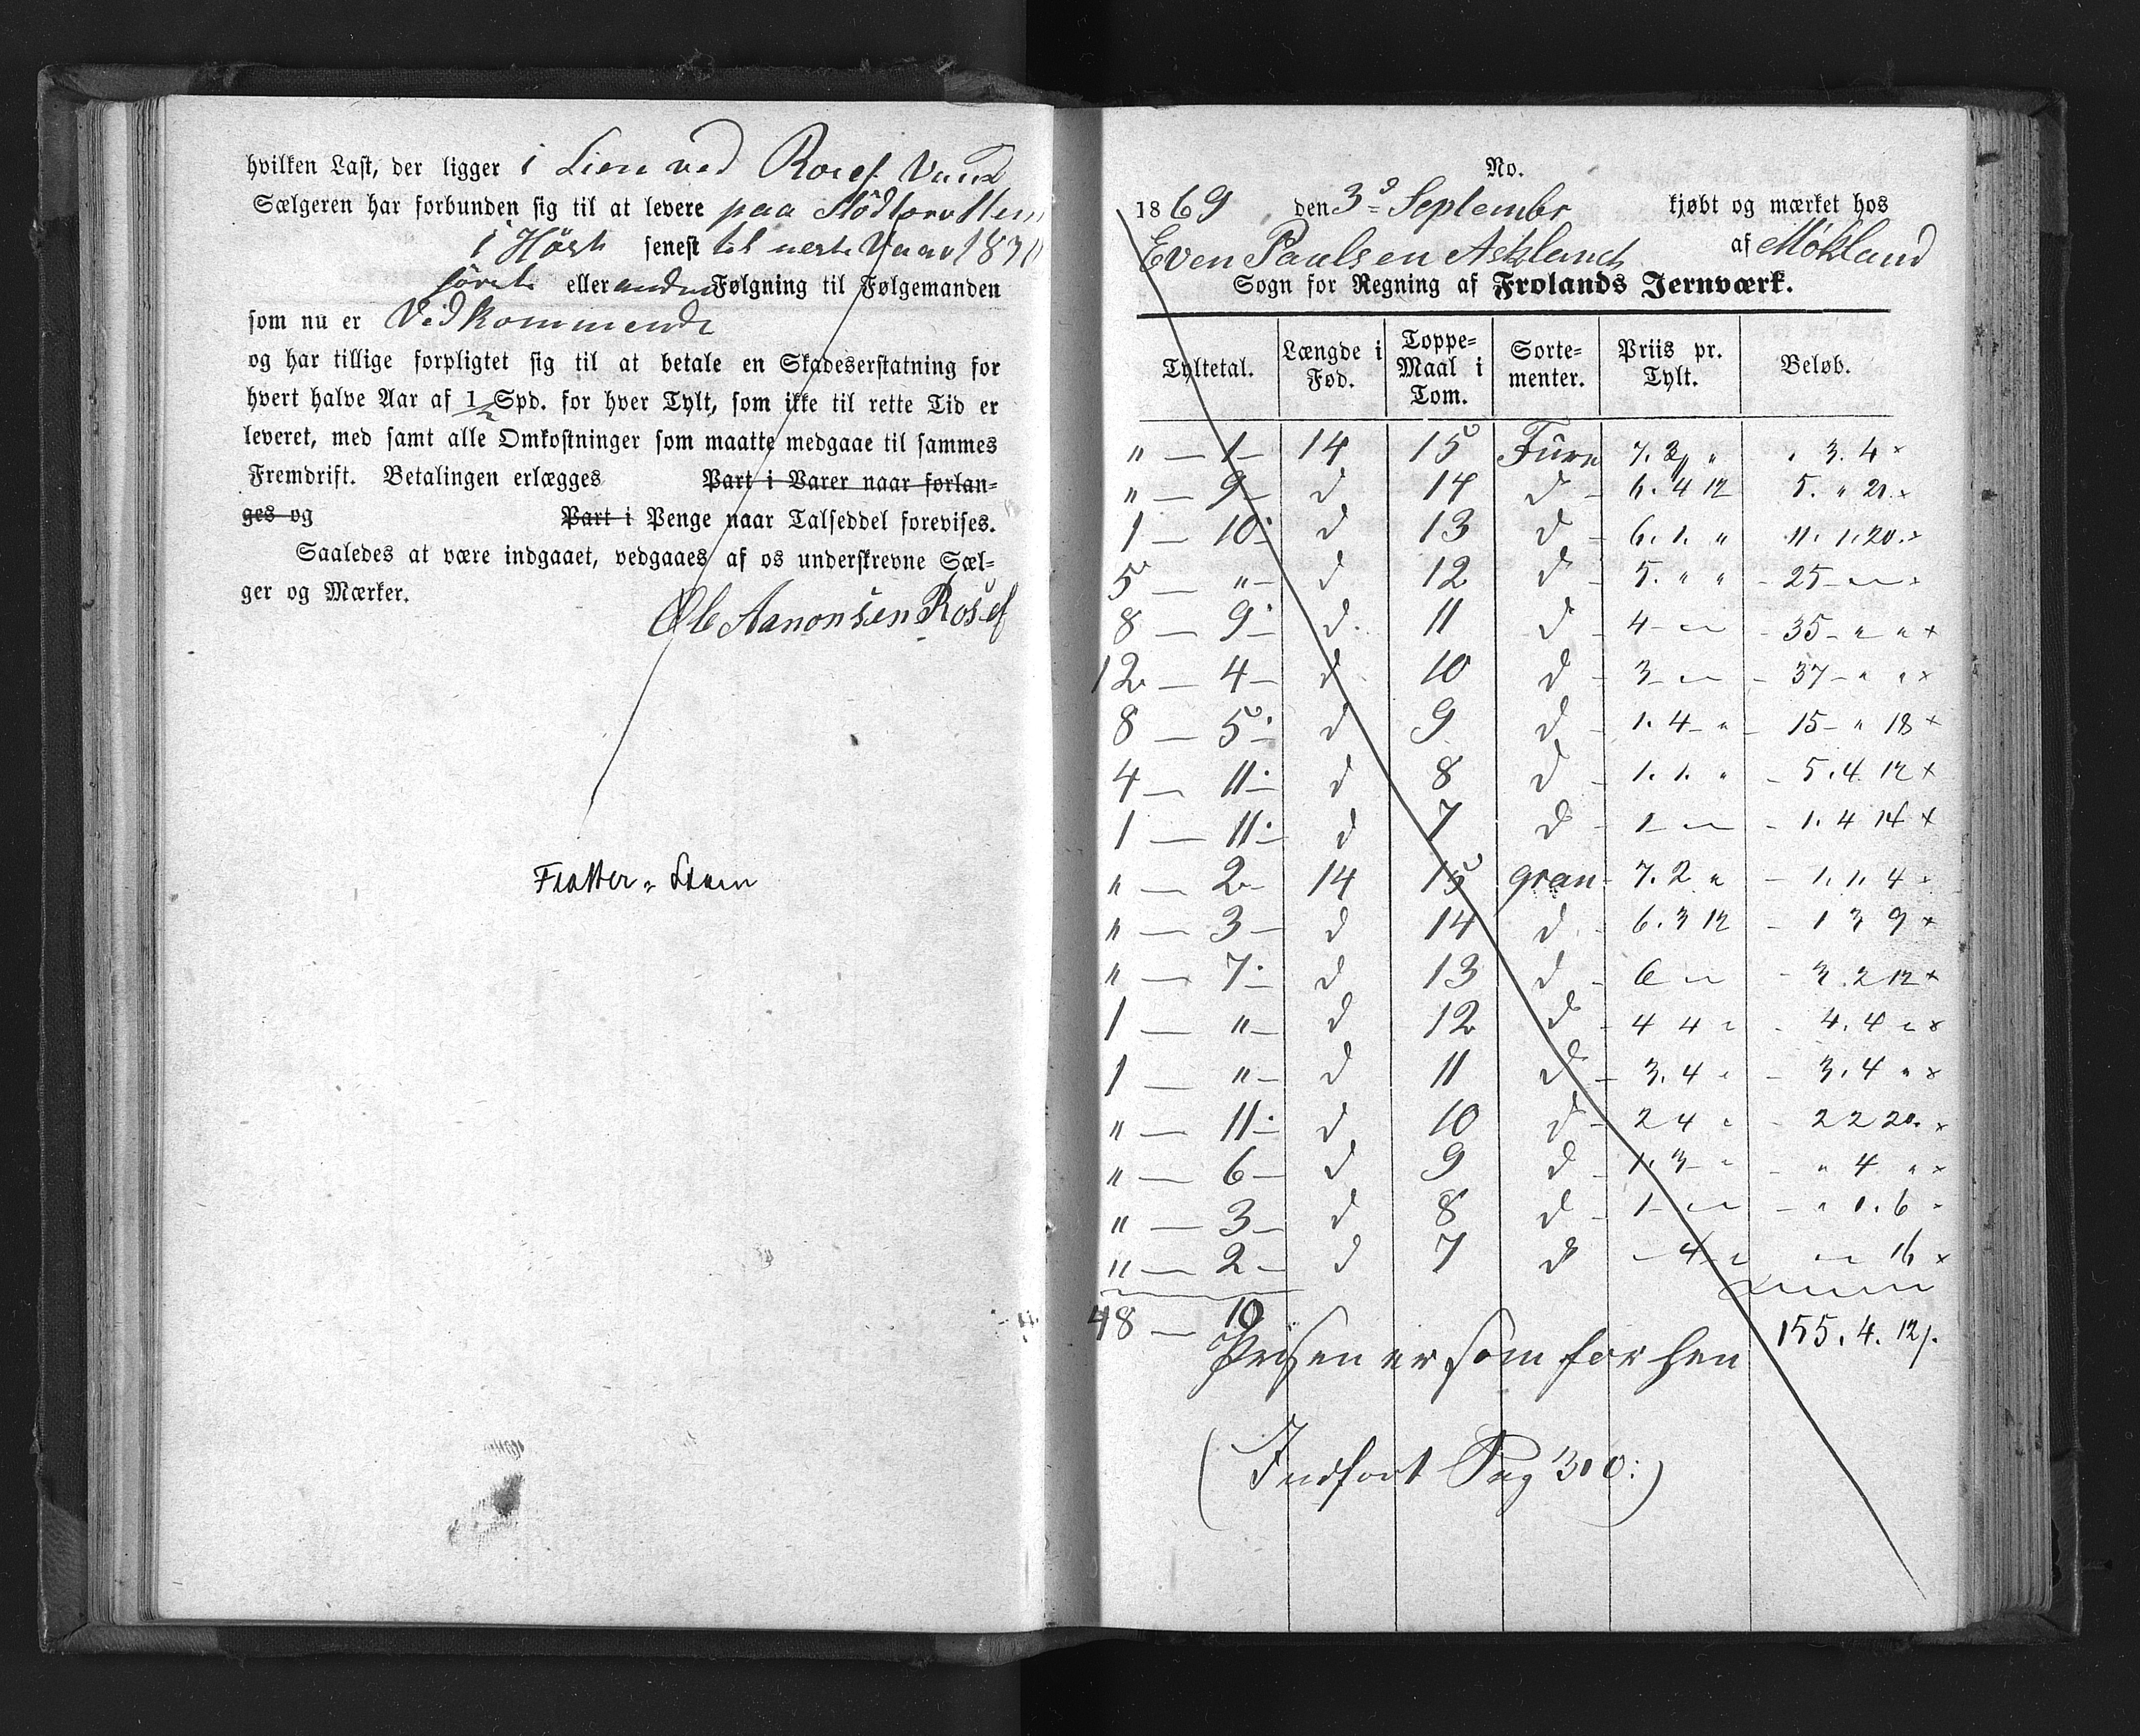 hvilken Last, der ligger i Lien ved Rosef Vand
Sælgeren har forbunden sig til at levere paa
i Høst senest til neste Vaar 1870
første eller anden Følgning til Følgemanden
som nu er Vedkommende
og har tillige forpligtet sig til at betale en Skadeserstatning for
hvert halve Aar af 1/2 Spd. for hver Tylt, som ikke til rette Tid er
leveret, med samt alle Omkostninger som maatte medgaae til sammes
Fremdrift. Betalingen erlægges Part i Varer naar forlan-
ges og Part i Penge naar Talseddel forevises.
Saaledes at være indgaaet, vedgaaes af os underskrevne Sæl-
ger og Mærker.
Ole Aanonsen Rosef
No.
1869 den 3d Septembr kjøbt og mærket hos
Even Paulsen Askland af Mökland
Sogn for Regning af Frolands Jernværk.
Tyltetal. Længde i Fod. Toppe-Maal i Tom. Sorte-menter. Priis pr. Tylt. Beløb.
" — 1 — 14 15 Furu 7. 3 " " 3. 4 ×
" — 9 — d 14 d - 6. 4 12 5. " 21 ×
1 — 10 - d 13 d - 6. 1. " 11. 1. 20 ×
5 — " — d 12 d - 5. " " - 25 - " - ×
8 — 9 - d 11 d - 4 - " - 35 - " " ×
12 — 4 — d 10 d - 3 - " - 37 - " " ×
8 — 5 - d 9 d - 1. 4 - " - 15 - " 18 ×
4 — 11 - d 8 d - 1. 1. " - 5. 4. 12 ×
1 — 11 - d 7 d - 1 - " - 1. 4 14 ×
" — 2 - 14 15 gran - 7. 2 " - 1. 1. 4 ×
" — 3 — d 14 d - 6. 3 12 - 1 3 9 ×
" — 7 - d 13 d - 6 " - 3. 2 12 ×
1 — " — d 12 d - 4 4 " - 4. 4 " ×
1 — " — d 11 d - 3. 4 " - 3. 4 " ×
" — 11 - d 10 d - 2 4 " - 2 2 20 ×
" — 6 — d 9 d - 1. 3 - " - " 4 " ×
" — 3 — d 8 d - 1 - " - " 1. 6 ×
" — 2 — d 7 d - 4 " " 16 ×
48 — 10 155. 4. 12
Prisen er som for hen
(Indført Pag 310:)